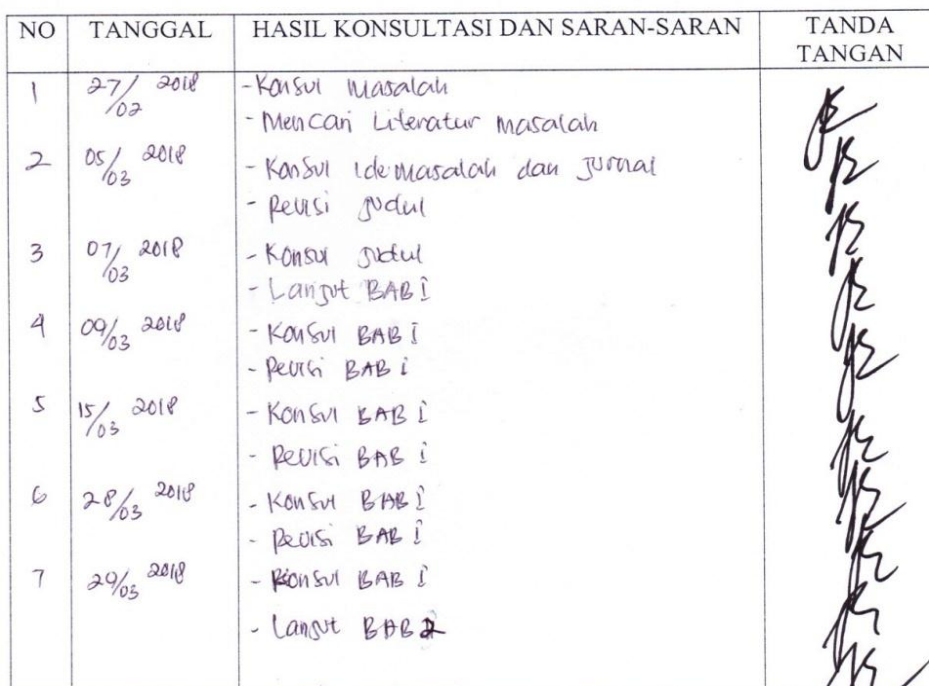 NO TANGGAL HASIL KONSULTASI DAN SARAN-SARAN TANDA TANGAN
1 27/02 2018 - Konsul Masalah
- Mencari Literatur masalah
2 05/03 2018 - Konsul ide masalah dan Jurnal
- Revisi Judul
3 07/03 2018 - Konsul Judul
- Lanjut BAB I
4 09/03 2018 - Konsul BAB I
- Revisi BAB I
5 15/03 2018 - Konsul BAB I
- Revisi BAB I
6 28/03 2018 - Konsul BAB I
- Revisi BAB I
7 29/03 2018 - Konsul BAB I
- Lanjut BAB 2